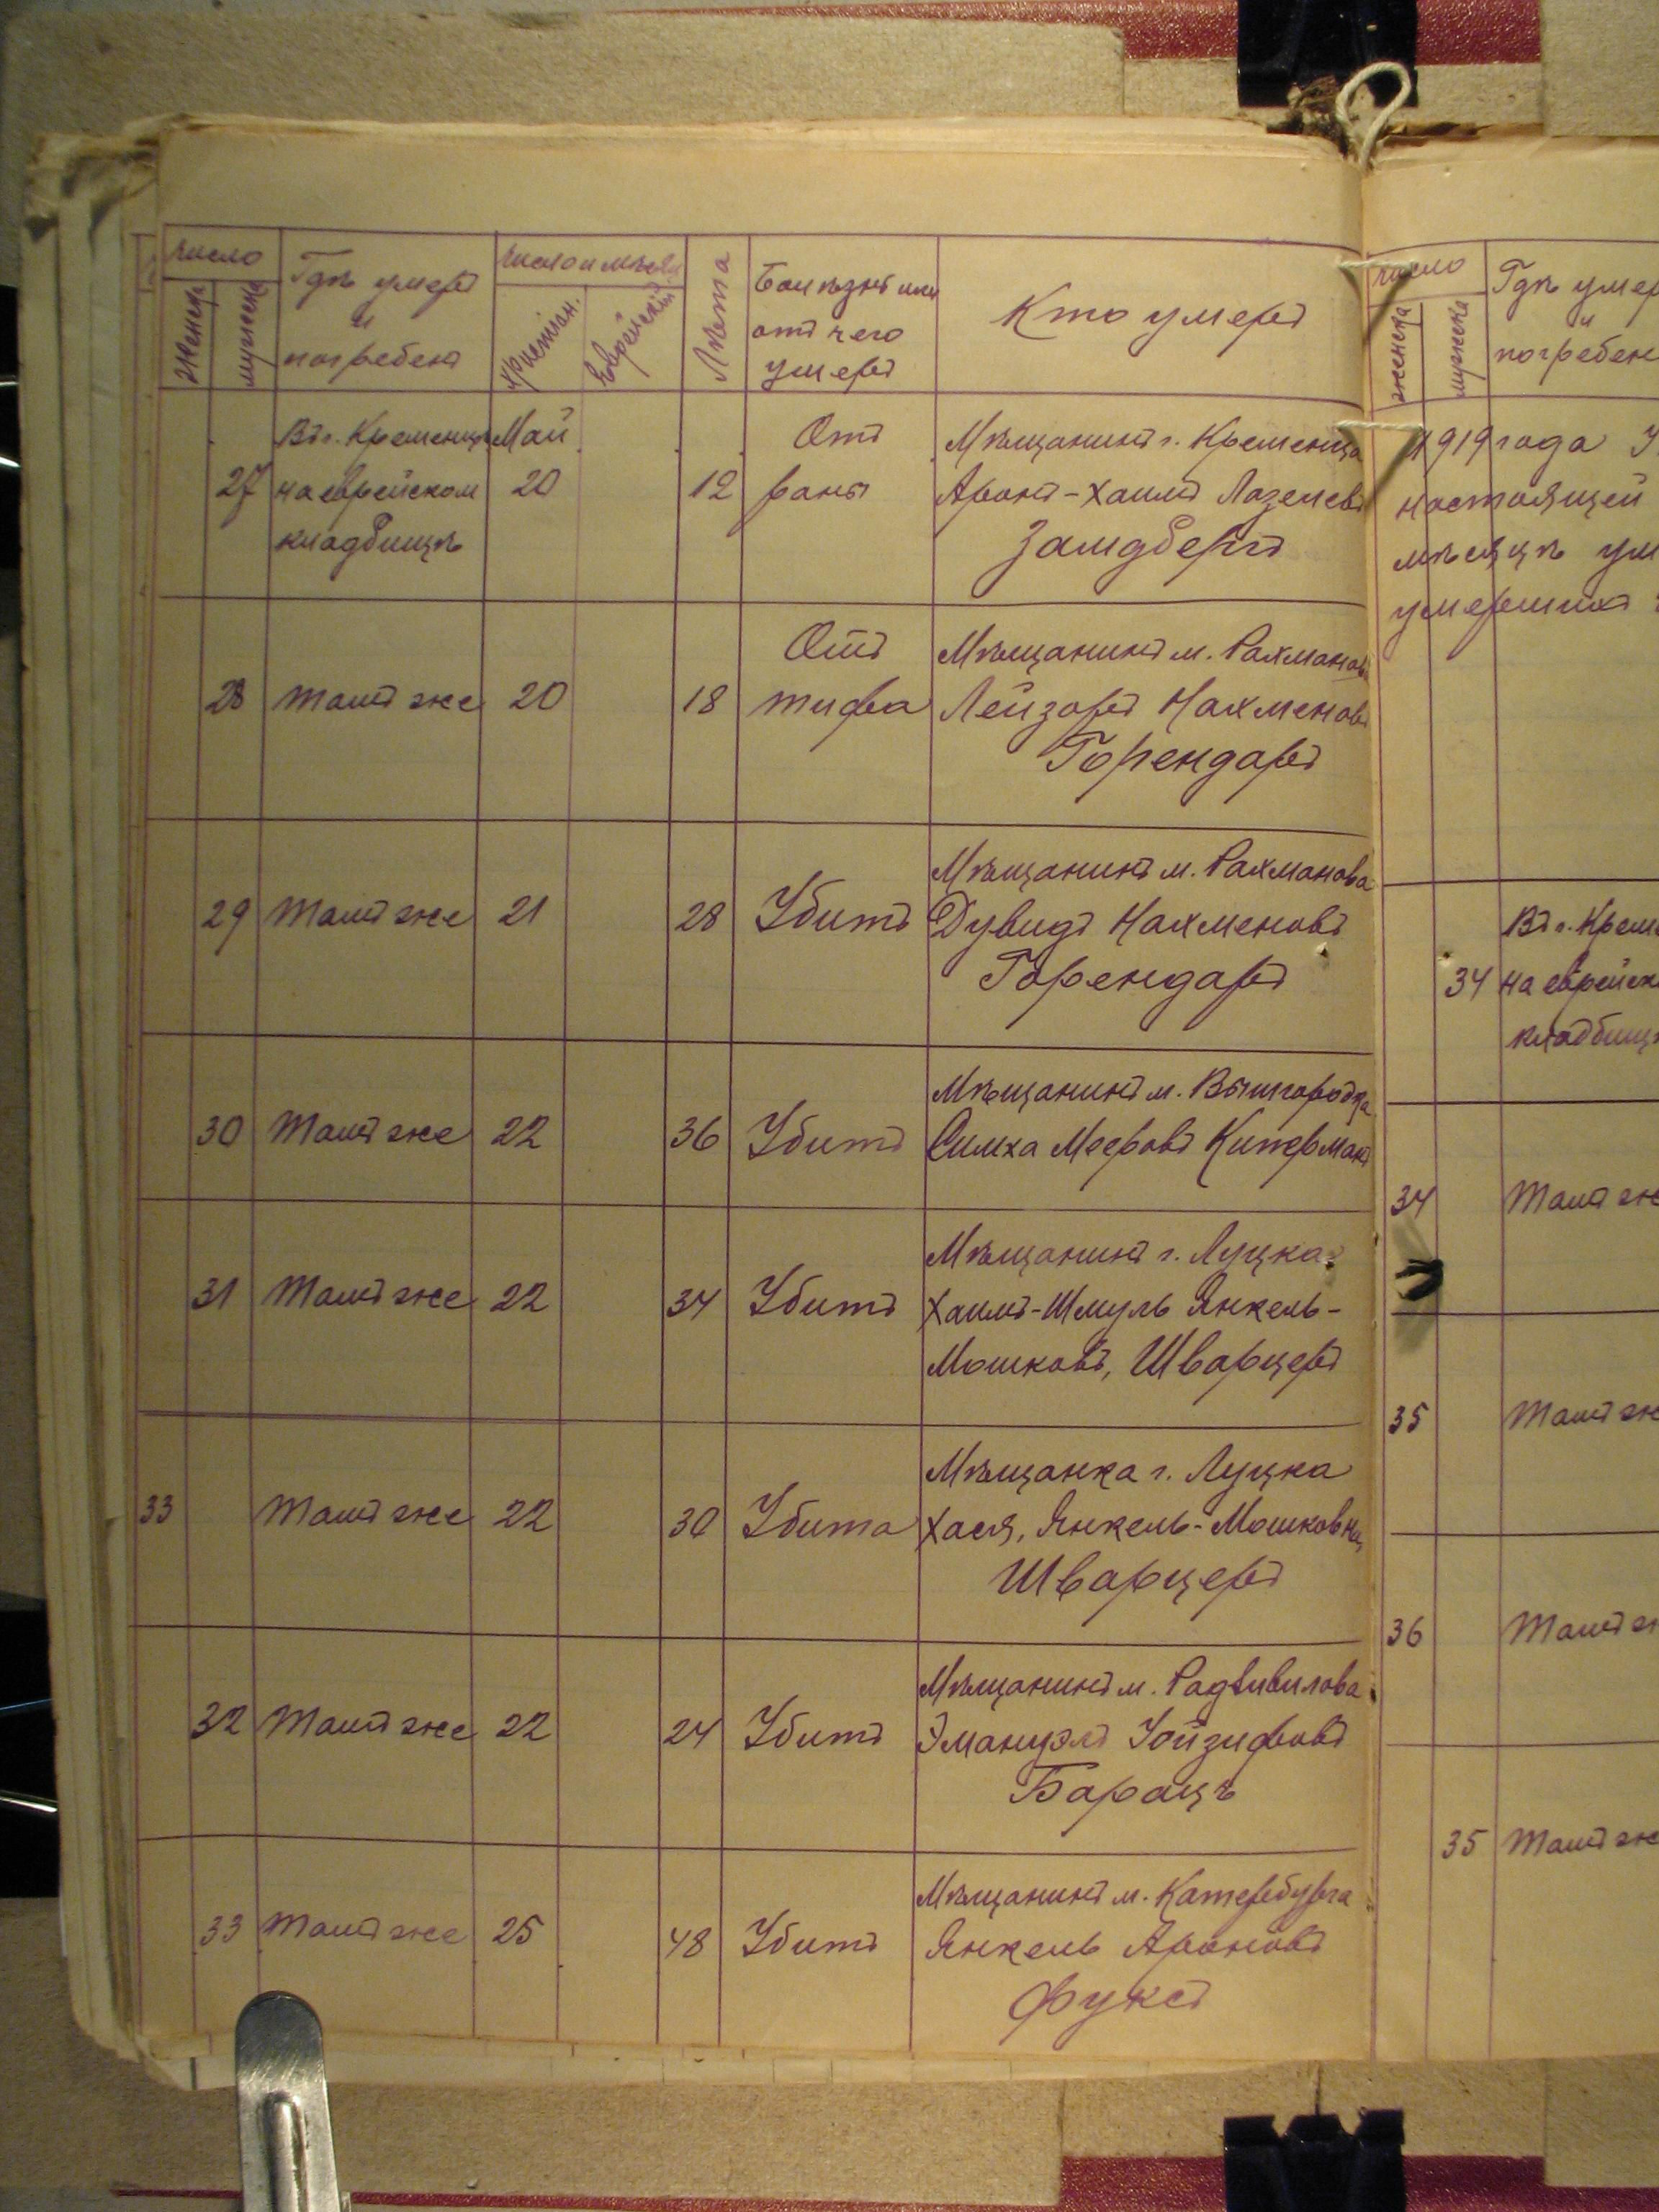 число
Гдѣ умеръ
и
погребенъ
число и мѣсяц
женска
мужска
христіан.
Еврейскій
Лѣта
Болѣзнь или
отъ чего
умеръ
Кто умеръ
Въ г. Кременцѣ Май Отъ Мѣщанинъ г. Кременца
27 на еврейском 20 12 раны Аронъ-Хаимъ Лазеневъ
кладбищѣ Замдбергъ
Отъ Мѣщанинъ м. Рахманова
28 Тамъ же 20 18 тифа Лейзоръ Нахменовъ
Горендаръ
Мѣщанинъ м. Рахманова
29 Тамъ же 21 28 Убитъ Дувидъ Нахменовъ
Горендаръ
Мѣщанинъ м. Вышгородка
30 Тамъ же 22 36 Убитъ Симха Мееровъ Китерманъ
Мѣщанинъ г. Луцка
31 Тамъ же 22 34 Убитъ Хаимъ-Шмуль Янкель-
Мошковъ, Шварцеръ
Мѣщанка г. Луцка
33 Тамъ же 22 30 Убита Хася, Янкель-Мошковна
Шварцеръ
Мѣщанинъ м. Радзивилова
32 Тамъ же 22 24 Убитъ Эмануэлъ Іойзифовъ
Барацъ
Мѣщанинъ м. Катербурга
33 Тамъ же 25 48 Убитъ Янкель Ароновъ
Фуксъ
число
женска
мужска
Гдѣ умер
и
погребен
1919 года
настоящей
мѣсяцѣ ум
умершихъ
Въ г. Креме
34 на еврейск
кладбищ
34 Тамъ ж
35 Тамъ ж
36 Тамъ
35 Тамъ ж